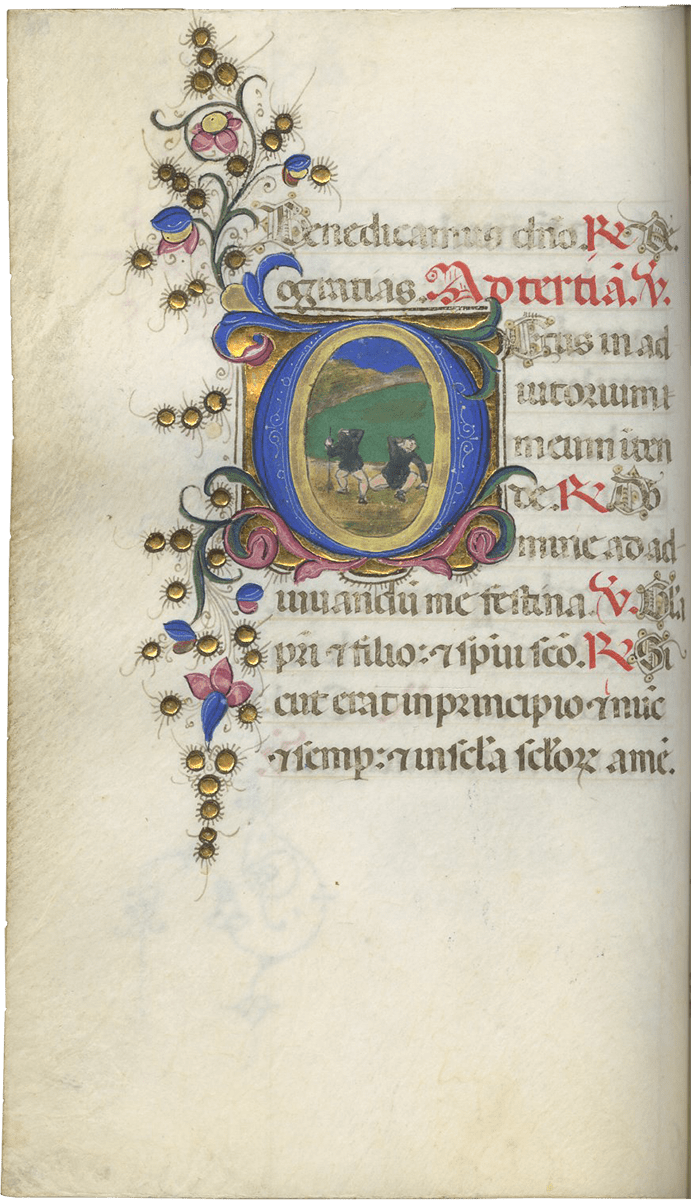 Benedicamus dño. R. De
o gratias. Ad tertiã. V.
Deus in ad
iutorium
meum inten
de. R. Do
mine ad ad
iuuandũ me festina. V. Gl'a
pr̃i ⁊ filio: ⁊ sp̃iui sc̃o. R. Si
cut erat in principio ⁊ nũc
⁊ semp: ⁊ in sc̃l'a sc̃l'oꝝ amẽ.